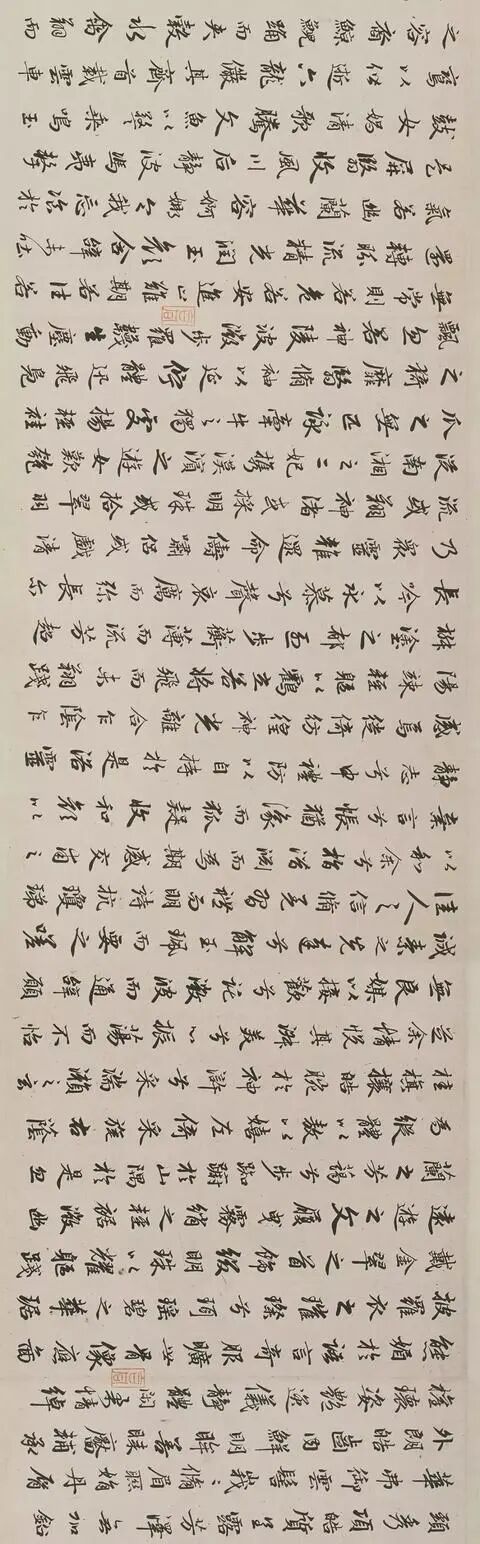 頸秀項皓質呈露芳澤無加鉛
華弗御雲髻峩峩脩眉聯娟丹脣
外朗皓齒內鮮明眸善睞靨輔承
權瓌姿豔逸儀靜體閑柔情綽
態媚於語言奇服曠世骨像應圖
披羅衣之璀璨兮珥瑤碧之華琚
戴金翠之首飾綴明珠以耀軀踐
遠遊之文履曳霧綃之輕裾微幽
蘭之芳藹兮步踟躕於山隅於是忽
焉縱體以遨以嬉左倚采旄右蔭
桂旗攘皓腕於神滸兮采湍瀨之玄
芝余情悅其淑美兮心振蕩而不怡
無良媒以接歡兮託微波而通辭願
誠素之先達兮解玉珮而要之嗟
佳人之信脩羌習禮而明詩抗瓊珶
以和余兮指潛淵而為期感交甫之
棄言兮悵猶豫而狐疑收和顏以
靜志兮申禮防以自持於是洛靈
感焉徙倚彷徨神光離合乍陰乍
陽竦輕軀以鶴立若將飛而未翔踐
椒塗之郁烈步蘅薄而流芳超
長吟以永慕兮聲哀厲而彌長尒
乃衆靈雜遝命儔嘯侶或戲清
流或翔神渚或採明珠或拾翠羽
從南湘之二妃攜漢濱之遊女歎匏
瓜之無匹詠牽牛之獨處揚輕袿
之猗靡翳脩袖以延佇體迅飛鳧
飄忽若神陵波微步羅襪生塵動
無常則若危若安進止難期若往若
還轉眄流精光潤玉顏含辭未吐
氣若幽蘭華容婀娜令我忘飡於
是屏翳收風川后靜波馮夷擊
鼓女媧清歌騰文魚以警乘鳴玉
鸞以偕逝六龍儼其齊首載雲車
之容裔鯨鯢踊而夾轂水禽翔而